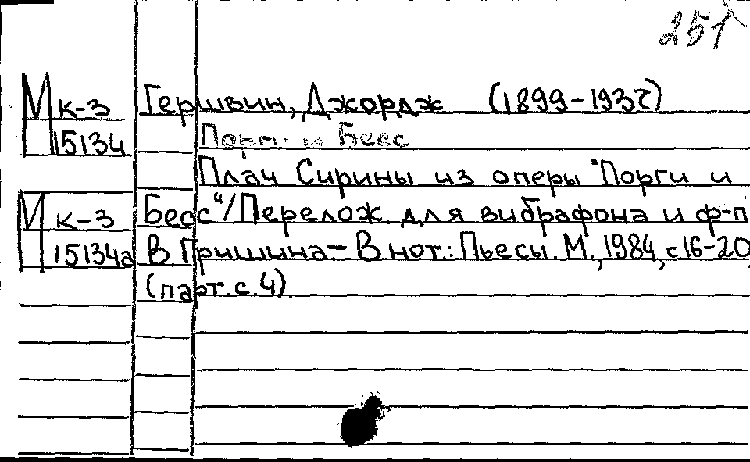 251
М к-3 Гершвин, Джордж (1899-1937)
15134 Порги и Бесс
Плач Сирины из оперы "Порги и
М к-3 Бесс"/Перелож. для вибрафона и ф-п
15134а В Гришина- В нот.: Пьесы. М., 1984, с 16-20
(парт. с. 4)